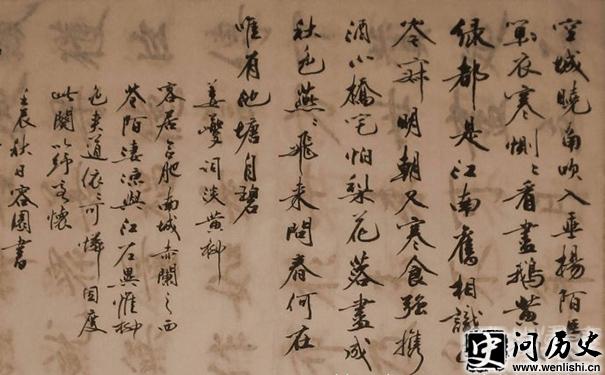 空城曉角吹入垂楊陌
單衣寒惻〻看盡鵝黃
綠都是江南舊相識
岑寂明朝又寒食強攜
酒小橋宅怕梨花落盡成
秋色燕〻飛來問春何在
唯有池塘自碧
姜夔詞淡黃柳
客居合肥南城赤闌之西
巷陌淒涼與江左異惟柳
色夾道依〻可憐因度
此闋以紓客懷
壬辰秋日容園書
问历史
www.wenlishi.cn